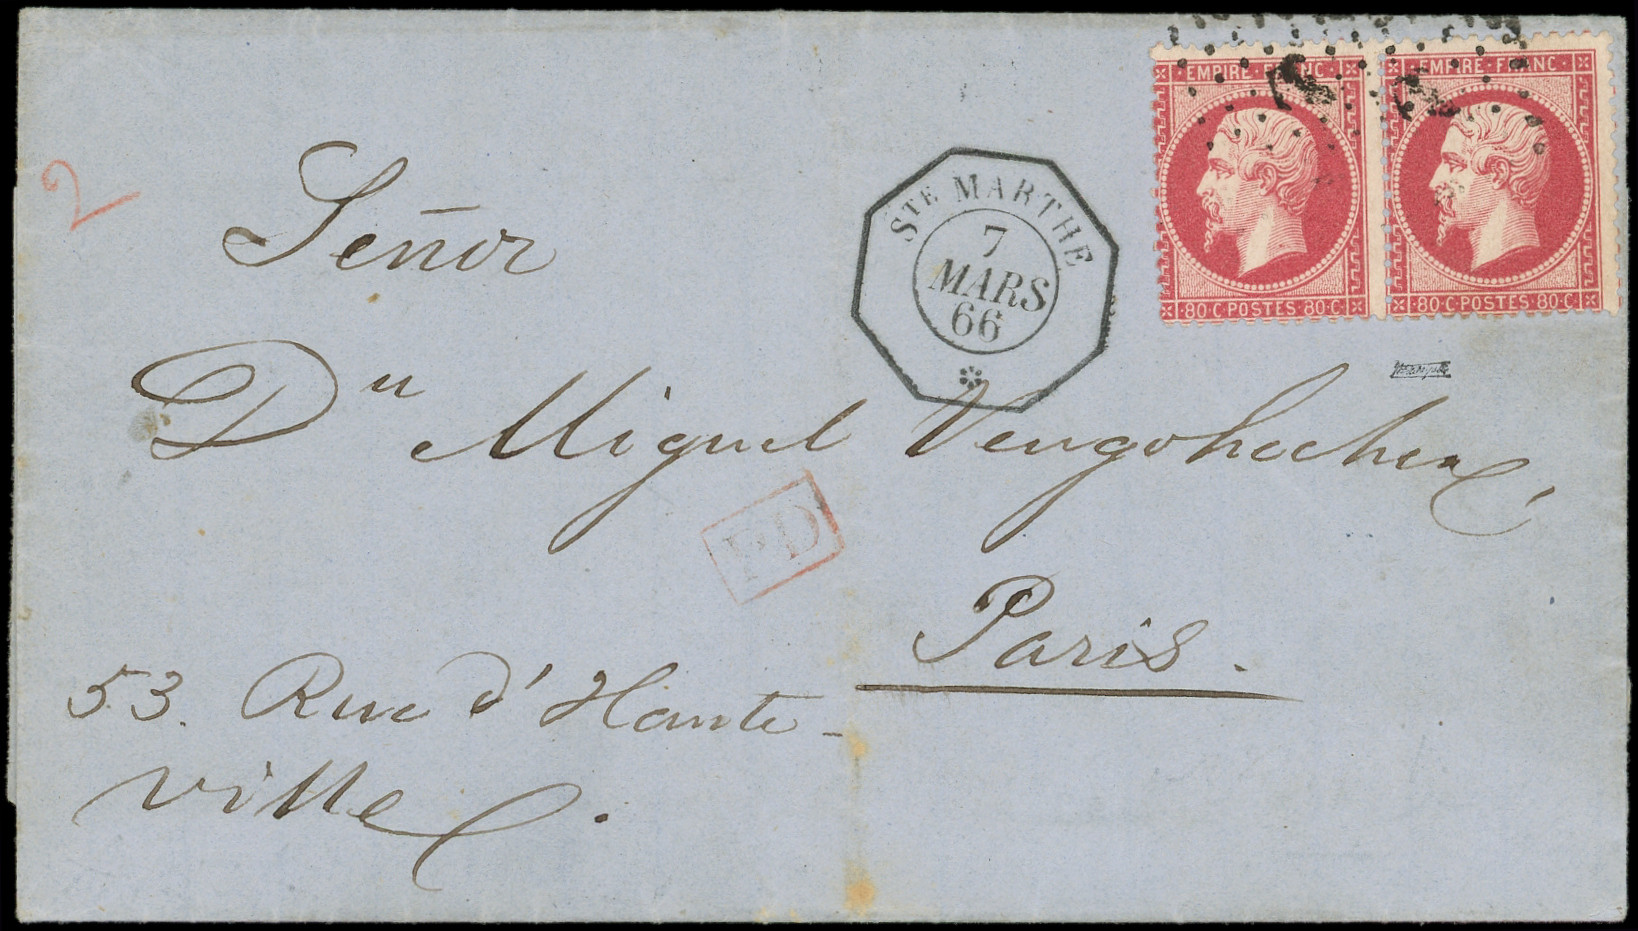 EMPIRE FRANC EMPIRE FRANC
80·C POSTES 80·C 80·C POSTES 80·C
STE MARTHE
7
MARS
66
2
Señor
Dn Miguel
PD
Paris.
53. Rue d'Haute-
ville.